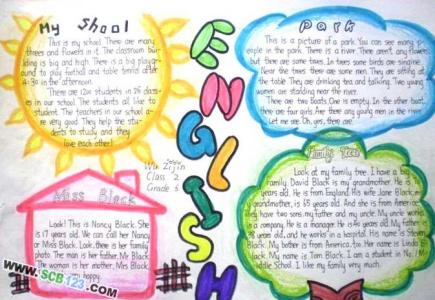 My Shool
This is my school. There are many
threes and flowers in it. The classroom buil-
ding is big and high. There is a big playgr-
ound to play football and table tennis after
4:30 in the afternoon.
There are 1200 students in 26 class-
es in our school. The students all like to
student. The teachers in our school a-
re very good. They help the stu-
dents to study and they
love each other!
Park
This is a picture of a park. You can see many p-
eople in the park. There is a river. There aren't any flowers,
but there are some trees. In trees some birds are singing.
Near the trees there are some men. They are sitting at
the table. They are drinking tea and talking. Two young
women are standing near the river.
There are two boats. One is empty. In the other boat,
there are four girls. Are there any young men in the river?
Let me see. Oh, yes, there are.
ENGLISH
Zijin
Class 2
Grade 6
Miss Black
Look! This is Nancy Black. She
is 17 years old. We can call her Nancy
or Miss Black. Look, there is her family
photo. The man is her father, Mr Black.
The woman is her mother, Mrs Black.
happy.
Family Tree
Look at my family tree. I have a big
family. David Black is my grandmother. He is
years old. He is from England. His wife Jane Black
grandmother, is 65 years old. And she is from America
they have two sons, my father and my uncle. My uncle works
a company. He is a manager. He is 40 years old. My father is
years old, and he works in a hospital. His name is Steven
Black. My mother is from America, too. Her name is Linda
Black. My name is Tom Black. I am a student in No. 1
Middle School. I like my family very much.
www.SCB123.com